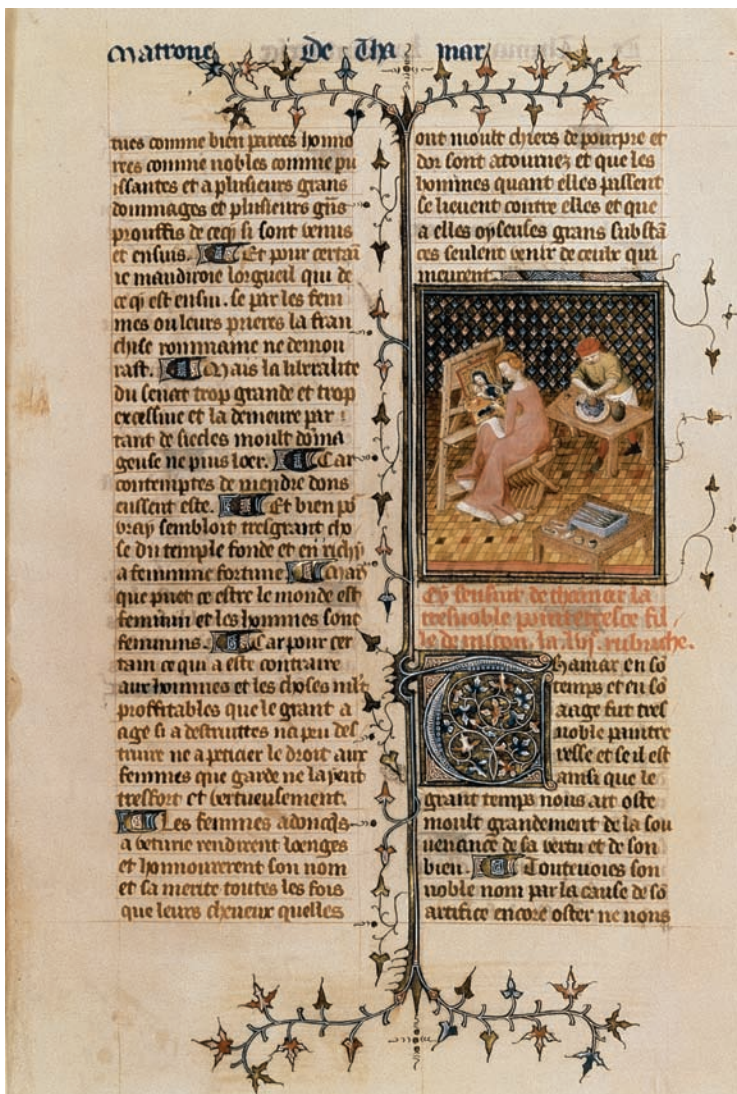 Matrone De Tha mar
tues comme bien parees honno
rees comme nobles comme pu
issantes et a plusieurs grans
dommages et plusieurs gñs
prouffis de cecy si sont venus
et ensuis. Et pour certai
ie maudiroie lorgueil qui de
ce qi est ensui. se par les fem
mes ou leurs prieres la fran
chise rommaine ne demou
rast. Mais la liberalite
du senat trop grande et trop
excessiue et la demeure par
tant de siecles moult doma
geuse ne puis loer. Car
contemptes de mendre dons
eussent este. Et bien po
vray sembloit tresgrant cho
se du temple fonde et en richy
a feminine fortune Mais
que puet ce estre le monde est
feminin et les hommes sont
feminins. Car pour cer
tain ce qui a este contraire
aux hommes et les choses mlt
proffitables que le grant a
age si a destruittes
ne a peticier le droit aux
femmes que garde ne laient
tresfort et vertueusement.
Les femmes adoncqs
a veturie rendirent loenges
et honnourerent son nom
et sa merite toutes les fois
que leurs cheueux quelles
ont moult chiers de pourpre et
dor sont atournez et que les
hommes quant elles passent
se lieuent contre elles et que
a elles oyseuses grans substā
ces seulent venir de ceulx qui
meurent.
Cy sensuit de thamar la
tresnoble pointeresce fil
le de micon. la .lvi. rubriche.
Thamar en sō
temps et en sō
aage fut tres
noble paintre
resse et se il est
ainsi que le
grant temps nous ait oste
moult grandement de la sou
uenance de sa vertu et de son
bien. Toutevoies son
noble nom par la cause de sō
artifice encore oster ne nous